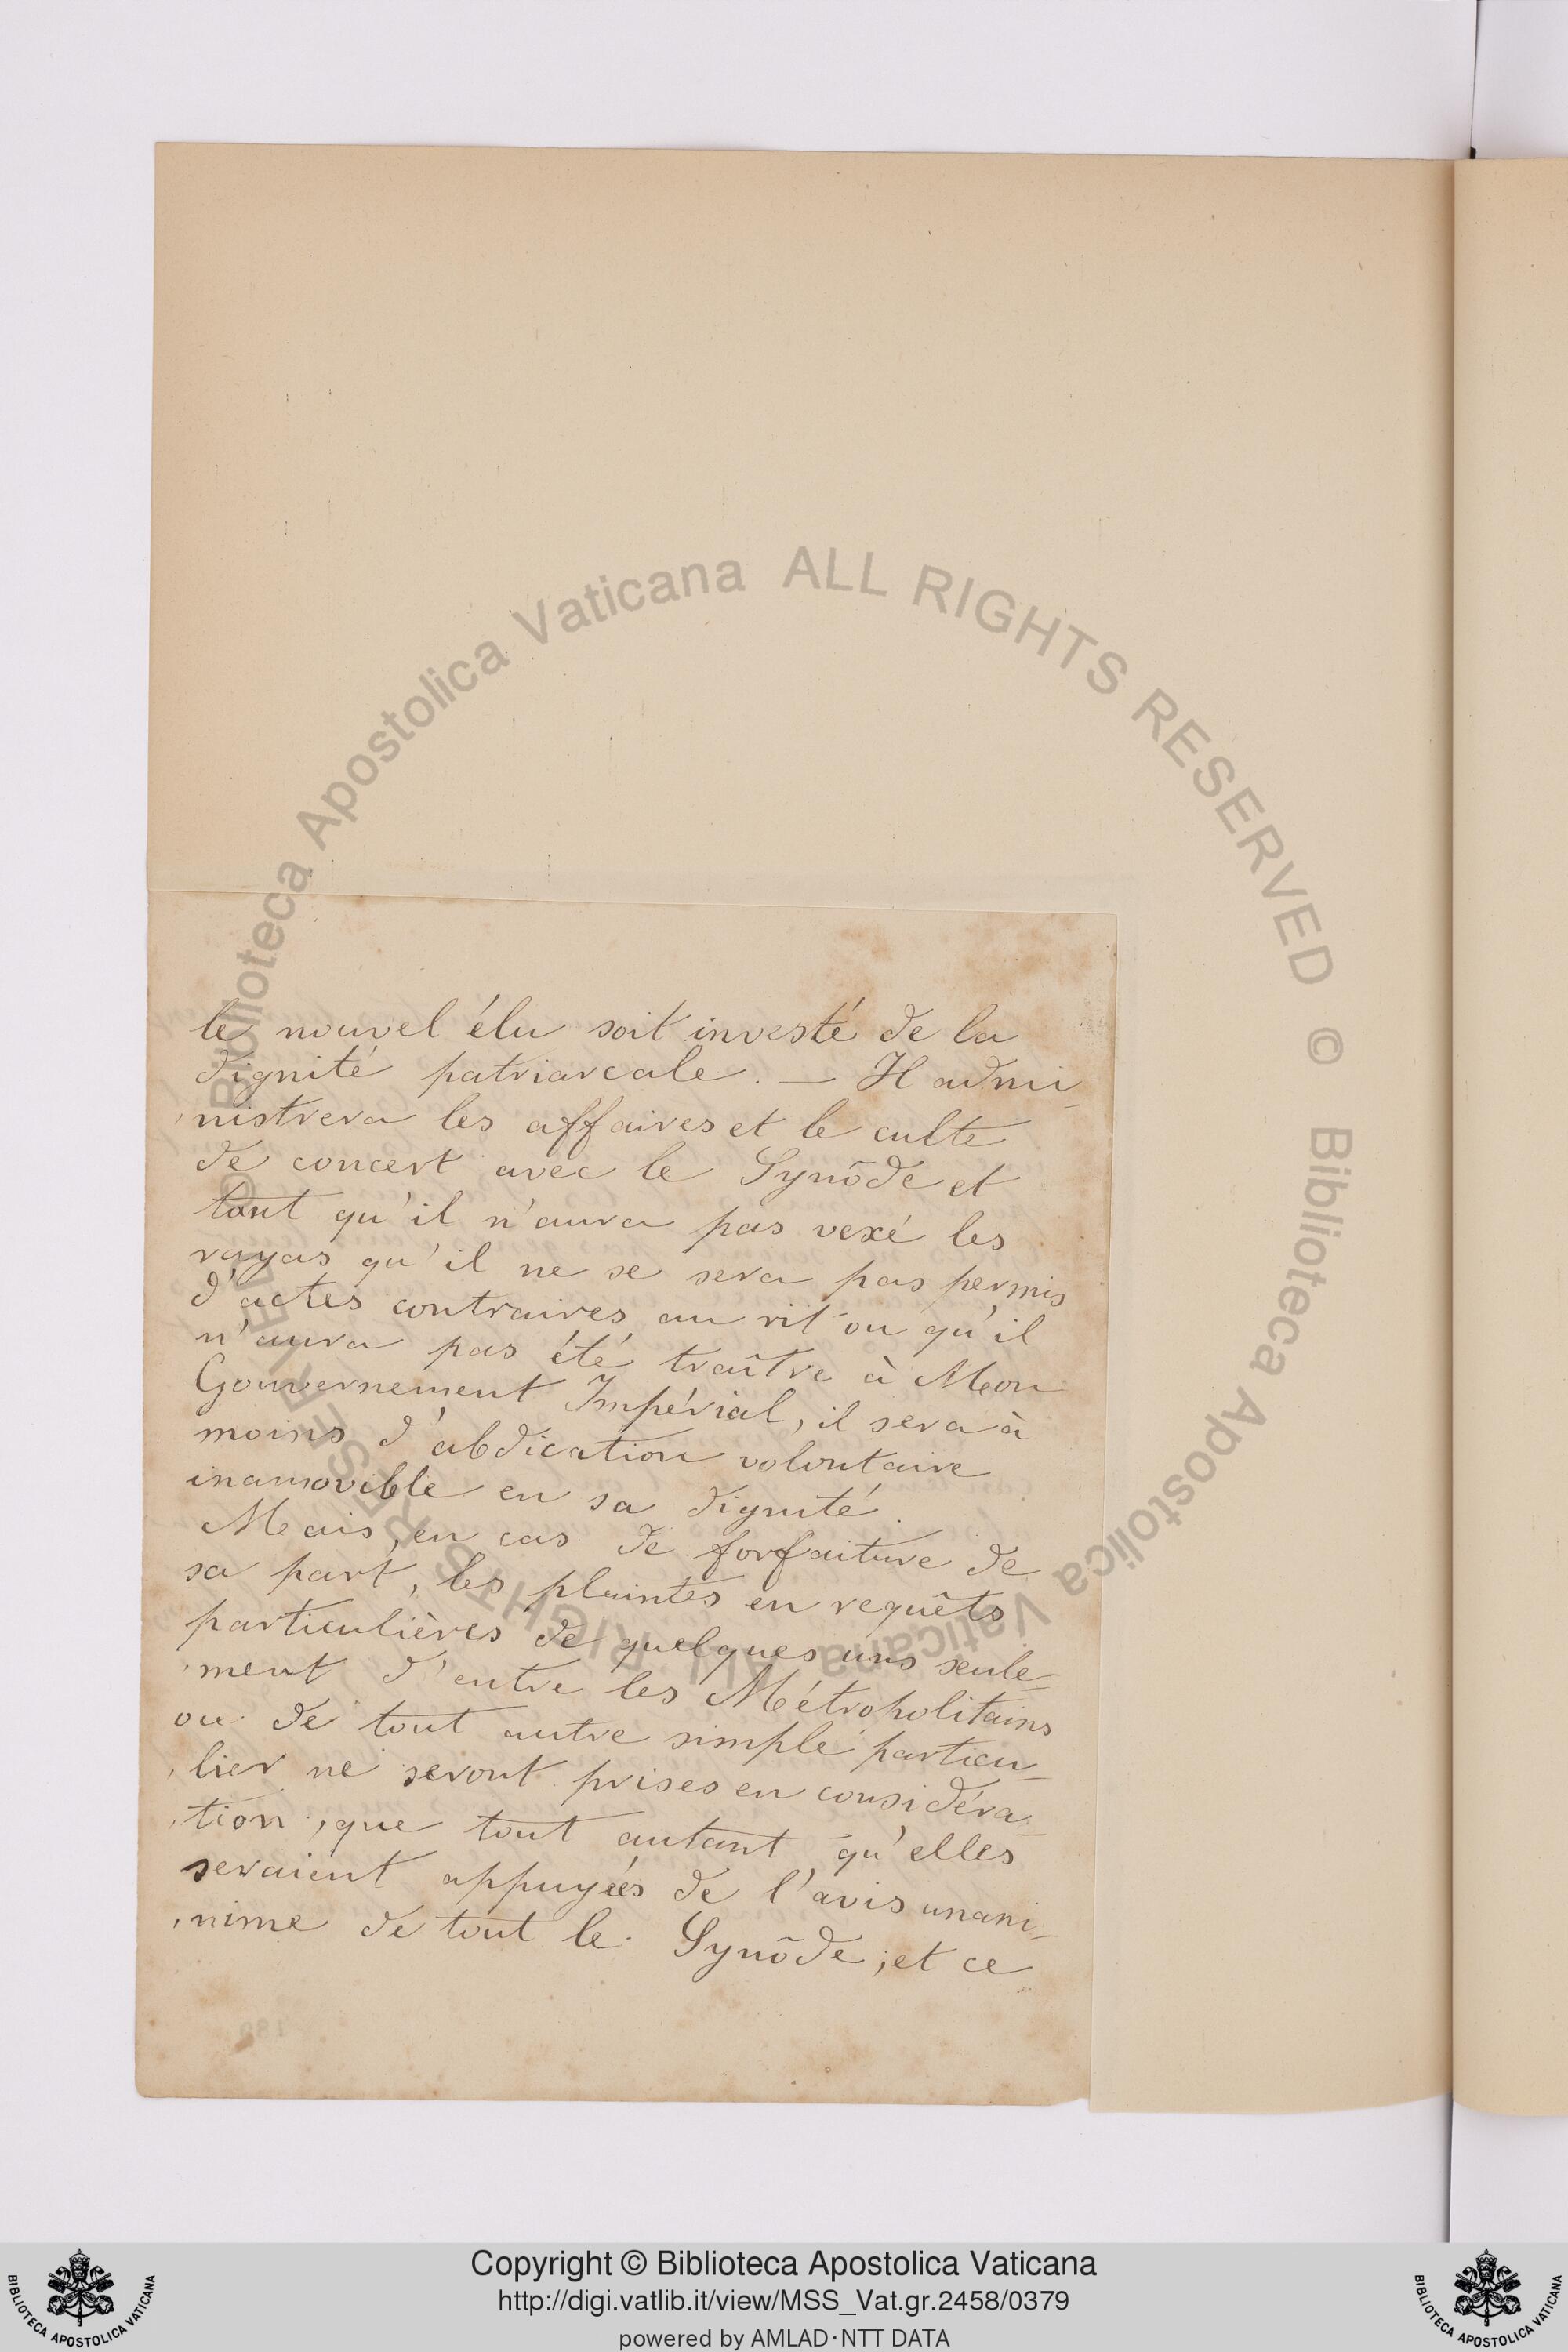 le nouvel élu soit investé de la
dignité patriarcale. — Il admi-
nistrera les affaires et le culte
de concert avec le Synôde et
tant qu'il n'aura pas vexé les
rayas qu'il ne se sera pas permis
d'actes contraires au rit ou qu'il
n'aura pas été traître à Mon
Gouvernement Impérial, il sera à
moins d'abdication volontaire
inamovible en sa dignité.
Mais, en cas de forfaiture de
sa part, les plaintes en requêts
particulières de quelques uns seule-
ment d'entre les Métropolitains
ou de tout autre simple particu-
lier ne seront prises en considéra-
tion, que tout autant qu'elles
seraient appuyées de l'avis unani-
nime de tout le Synôde; et ce
© Biblioteca Apostolica Vaticana ALL RIGHTS RESERVED
© Biblioteca Apostolica Vaticana ALL RIGHTS RESERVED
Copyright © Biblioteca Apostolica Vaticana
http://digi.vatlib.it/view/MSS_Vat.gr.2458/0379
powered by AMLAD·NTT DATA
BIBLIOTECA APOSTOLICA VATICANA
BIBLIOTECA APOSTOLICA VATICANA